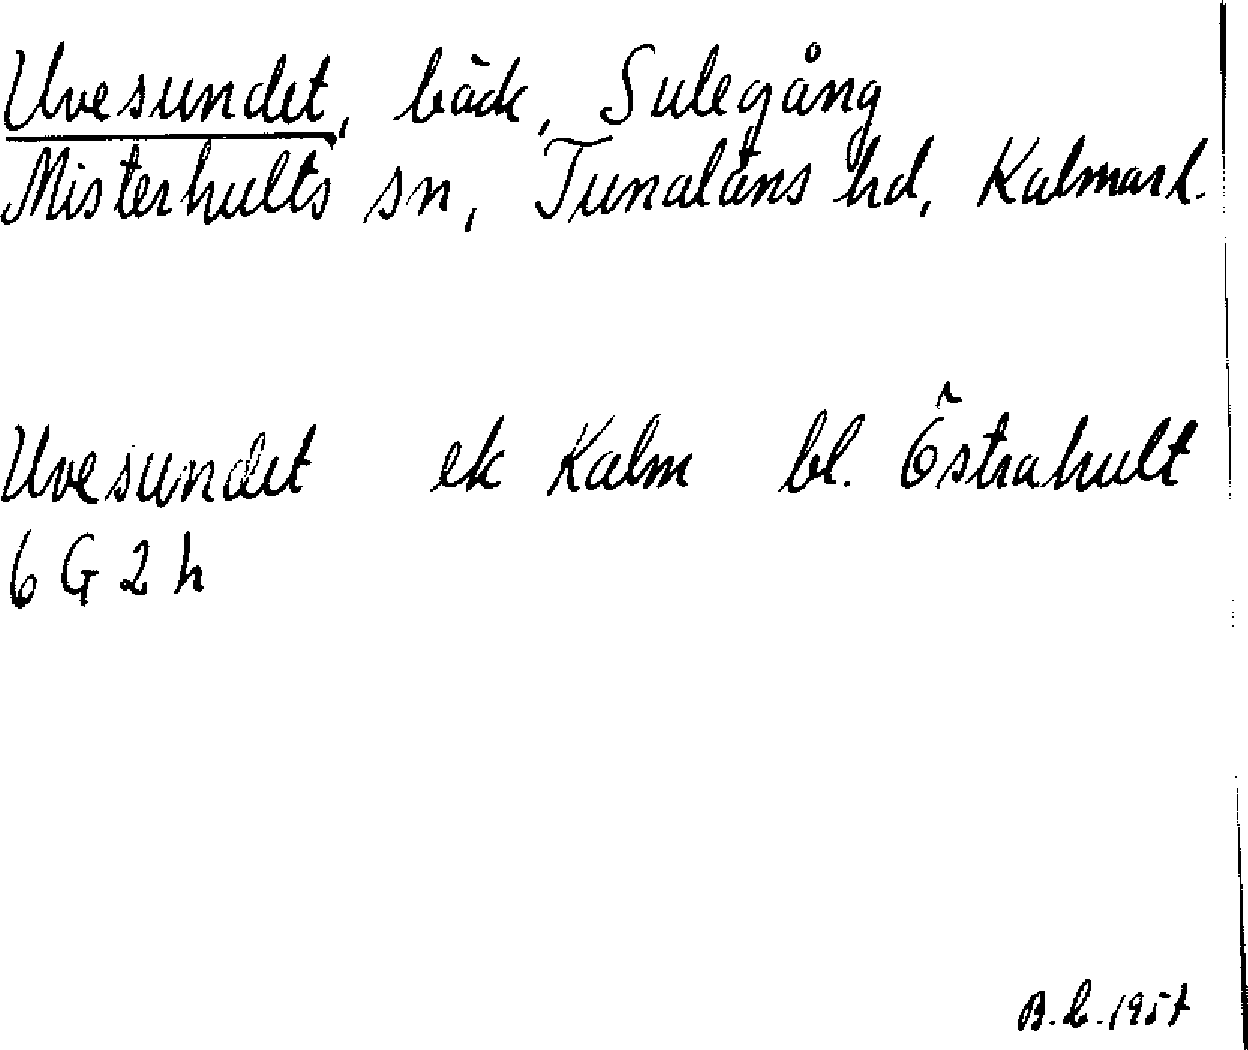 Uvesundet, bäck, Sulegång
Misterhults sn, Tunaläns hd, Kalmar l.
Uvesundet ek Kalm bl. Östrahult
6 G 2 h
B. L. 1957